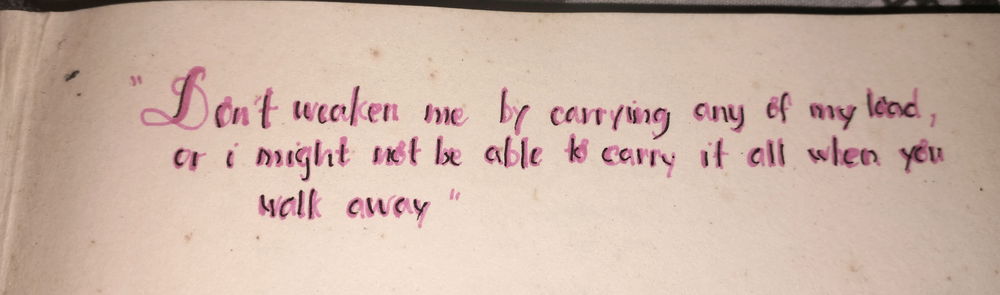 "Don't weaken me by carrying any of my load,
or i might not be able to carry it all when you
walk away"